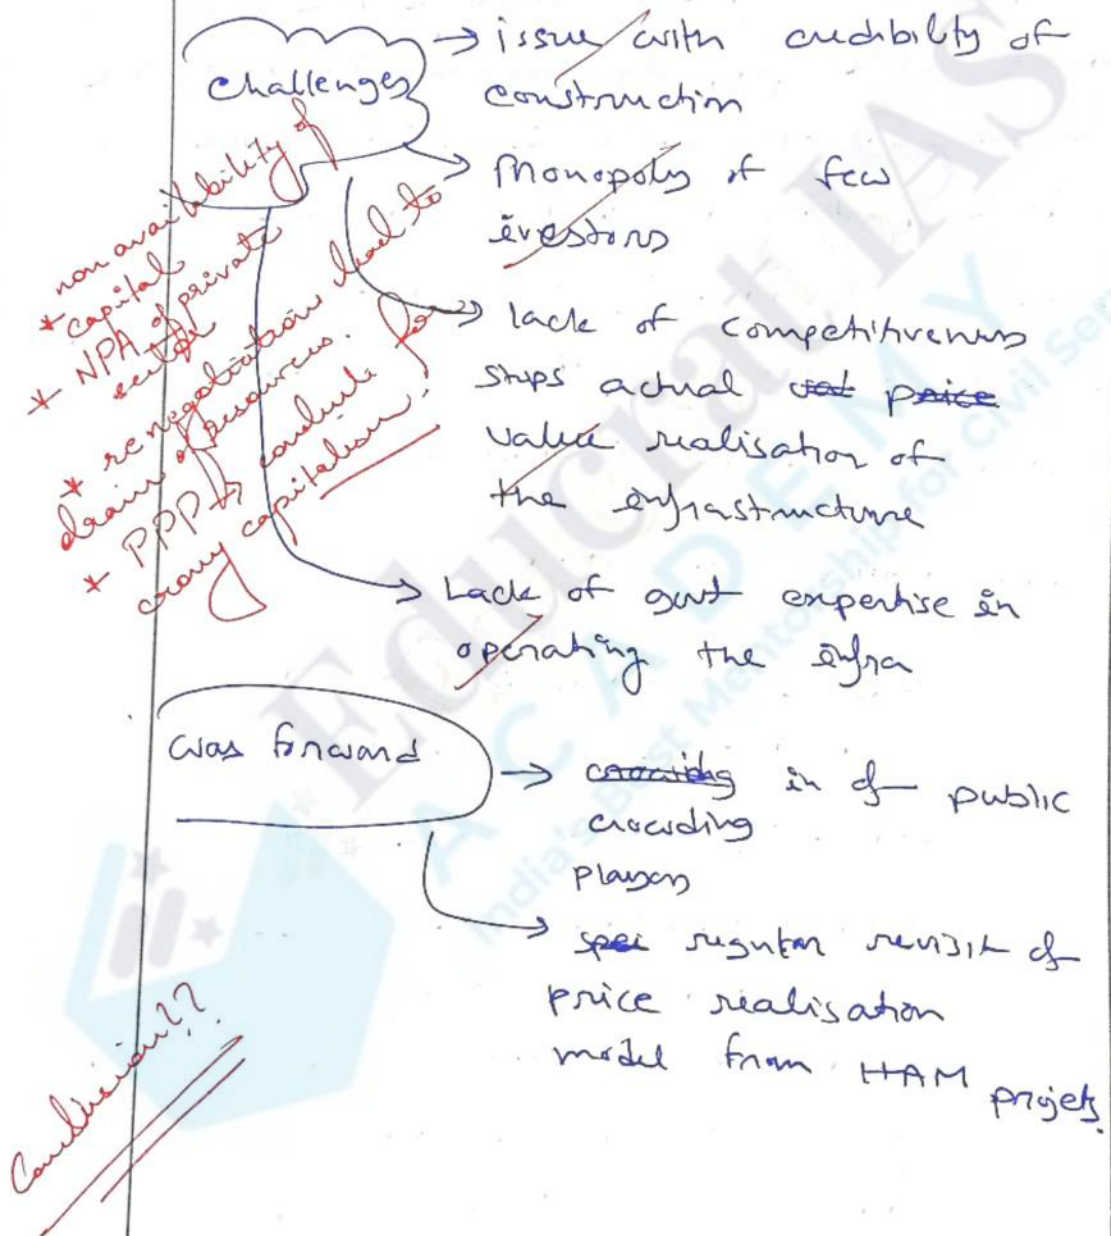 challenges
→ issue with credibility of
construction
→ Monopoly of few
ivestors
→ lack of competitiveness
stops actual price
value realisation of
the infrastructure
→ Lack of govt expertise in
operating the infra
non availability of
* capital
* NPA of private
sector
* renegotiations lead to
drain of resources.
* PPP conduit for
crony capitalism.
was forward
→ crowding in of public
crowding
players
→ regular revisit of
price realisation
model from HAM projets.
Conclusion??
Educrat IAS
ACADEMY
India's Best Mentorship for Civil Ser